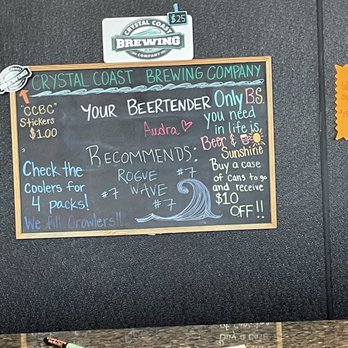 $25
CRYSTAL COAST
BREWING
COMPANY
CRYSTAL COAST BREWING COMPANY
"CCBC"
Stickers
$1.00
YOUR BEERTENDER
Audra
RECOMMENDS:
ROGUE
#7 WAVE #7
#7
Only B.S.
you need
in life is,
Beer &
Sunshine
Buy a case
of cans to go
and receive
$10
OFF!!
Check the
coolers for
4 packs!
We fill Growlers!!